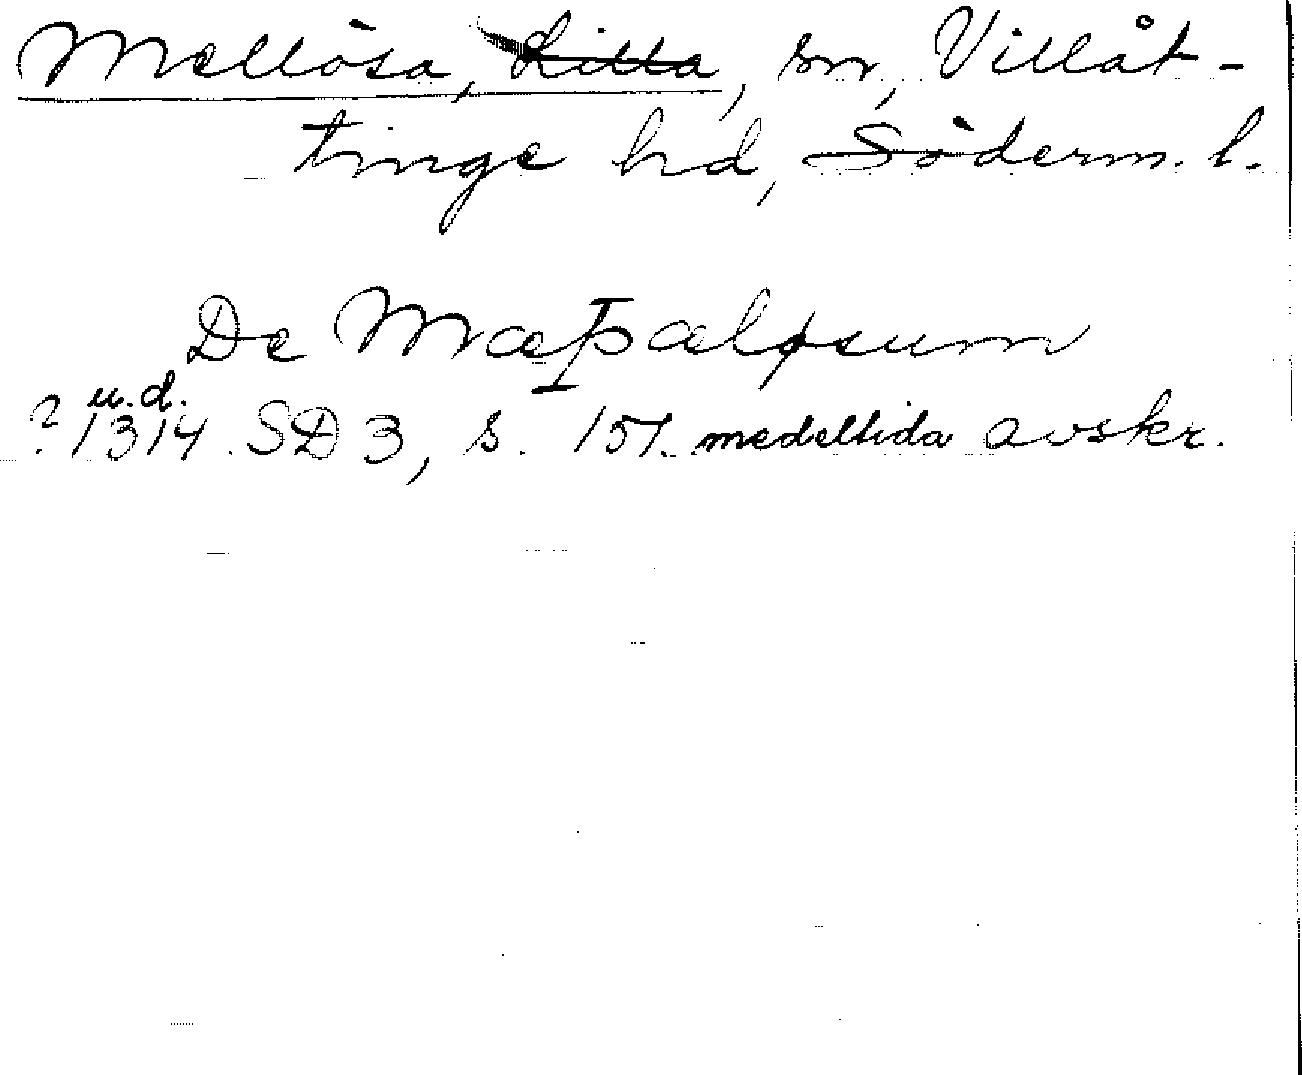 Mellösa, Lilla, sn, Villåt-
tinge hd, Söderm. l.
De Mæþæløsum
u.d.
? 1314 SD 3, s. 151. medeltida avskr.